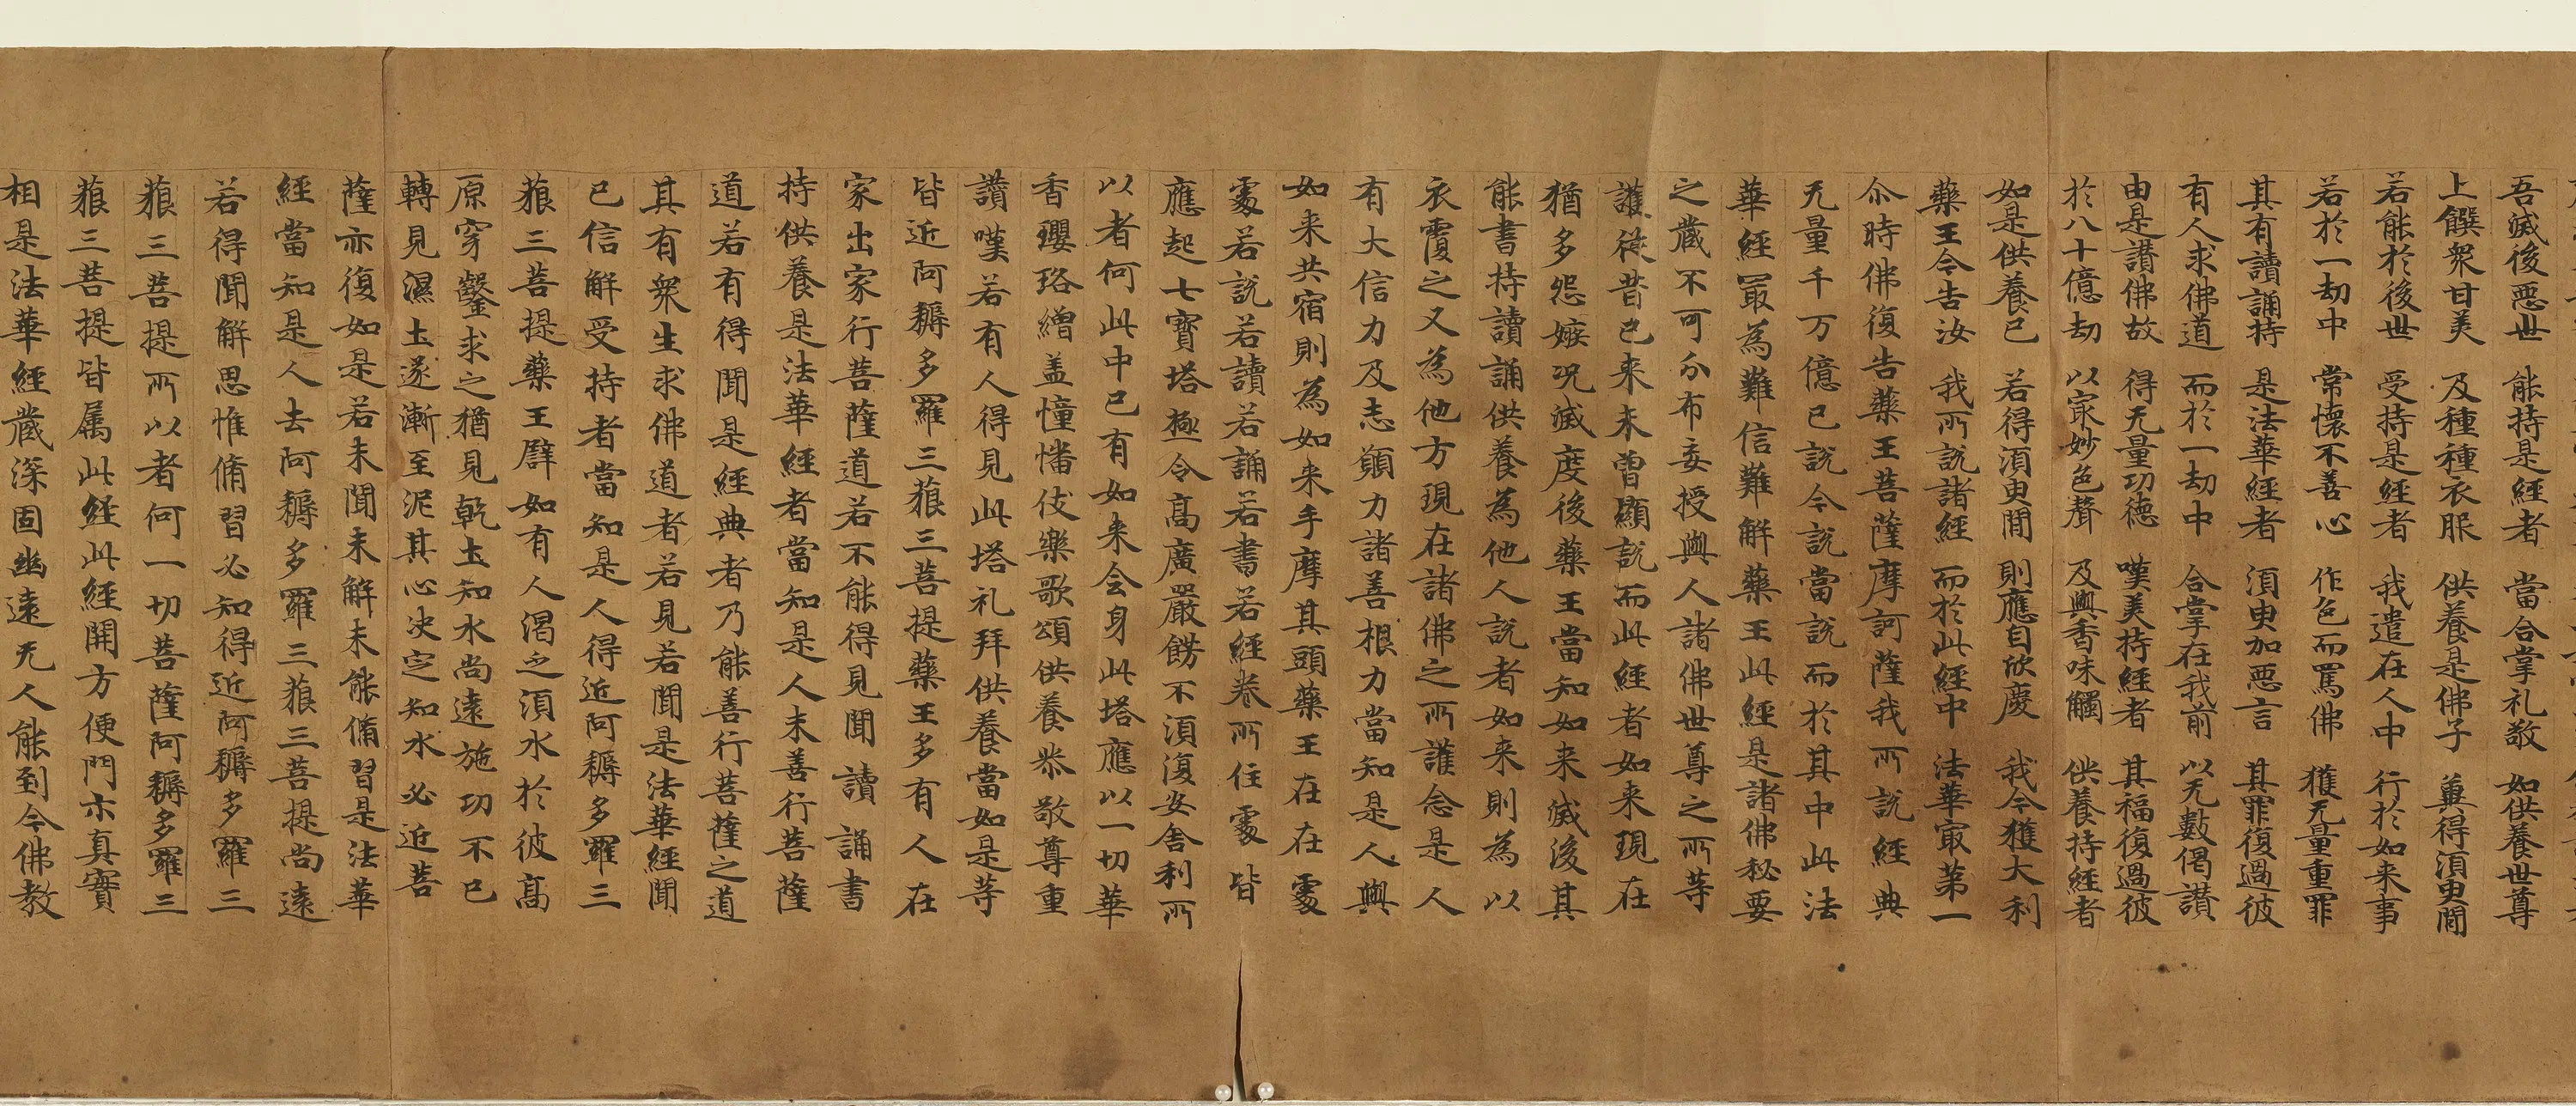 吾滅後惡世 能持是經者 當合掌礼敬 如供養世尊
上饌衆甘美 及種種衣服 供養是佛子 冀得須臾聞
若能於後世 受持是經者 我遣在人中 行於如来事
若於一劫中 常懷不善心 作色而罵佛 獲无量重罪
其有讀誦持 是法華經者 須臾加惡言 其罪復過彼
有人求佛道 而於一劫中 合掌在我前 以无數偈讃
由是讃佛故 得无量功德 嘆美持經者 其福復過彼
於八十億劫 以㝡妙色聲 及與香味觸 供養持經者
如是供養已 若得須臾聞 則應自欣慶 我今獲大利
藥王今告汝 我所說諸經 而於此經中 法華㝡第一
尒時佛復告藥王菩薩摩訶薩我所說經典
无量千万億已說今說當說而於其中此法
華經㝡為難信難解藥王此經是諸佛秘要
之藏不可分布妄授與人諸佛世尊之所守
護從昔已来未曾顯說而此經者如来現在
猶多怨嫉况滅度後藥王當知如来滅後其
能書持讀誦供養為他人說者如来則為以
衣覆之又為他方現在諸佛之所護念是人
有大信力及志願力諸善根力當知是人與
如来共宿則為如来手摩其頭藥王在在處
處若說若讀若誦若書若經卷所住處皆
應起七寶塔極令高廣嚴餝不須復安舍利所
以者何此中已有如来全身此塔應以一切華
香瓔珞繒盖幢幡伎樂歌頌供養恭敬尊重
讃嘆若有人得見此塔礼拜供養當知是等
皆近阿耨多羅三藐三菩提藥王多有人在
家出家行菩薩道若不能得見聞讀誦書
持供養是法華經者當知是人未善行菩薩
道若有得聞是經典者乃能善行菩薩之道
其有衆生求佛道者若見若聞是法華經聞
已信解受持者當知是人得近阿耨多羅三
藐三菩提藥王譬如有人渴乏須水於彼高
原穿鑿求之猶見乾土知水尚遠施功不已
轉見濕土遂漸至泥其心决定知水必近菩
薩亦復如是若未聞未解未能脩習是法華
經當知是人去阿耨多羅三藐三菩提尚遠
若得聞解思惟脩習必知得近阿耨多羅三
藐三菩提所以者何一切菩薩阿耨多羅三
藐三菩提皆属此經此經開方便門示真實
相是法華經藏深固幽遠无人能到今佛教